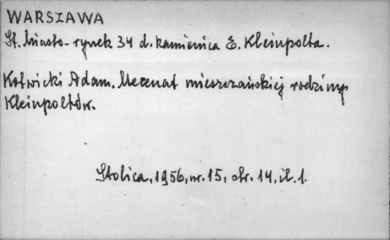 WARSZAWA
St. Miasto - rynek 34 d. kamienica E. Kleinpolta.
Kotwicki Adam. Mecenat mieszczańskiej rodziny
Kleinpoltów.
Stolica, 1956, nr. 15, str. 14, il. 1.